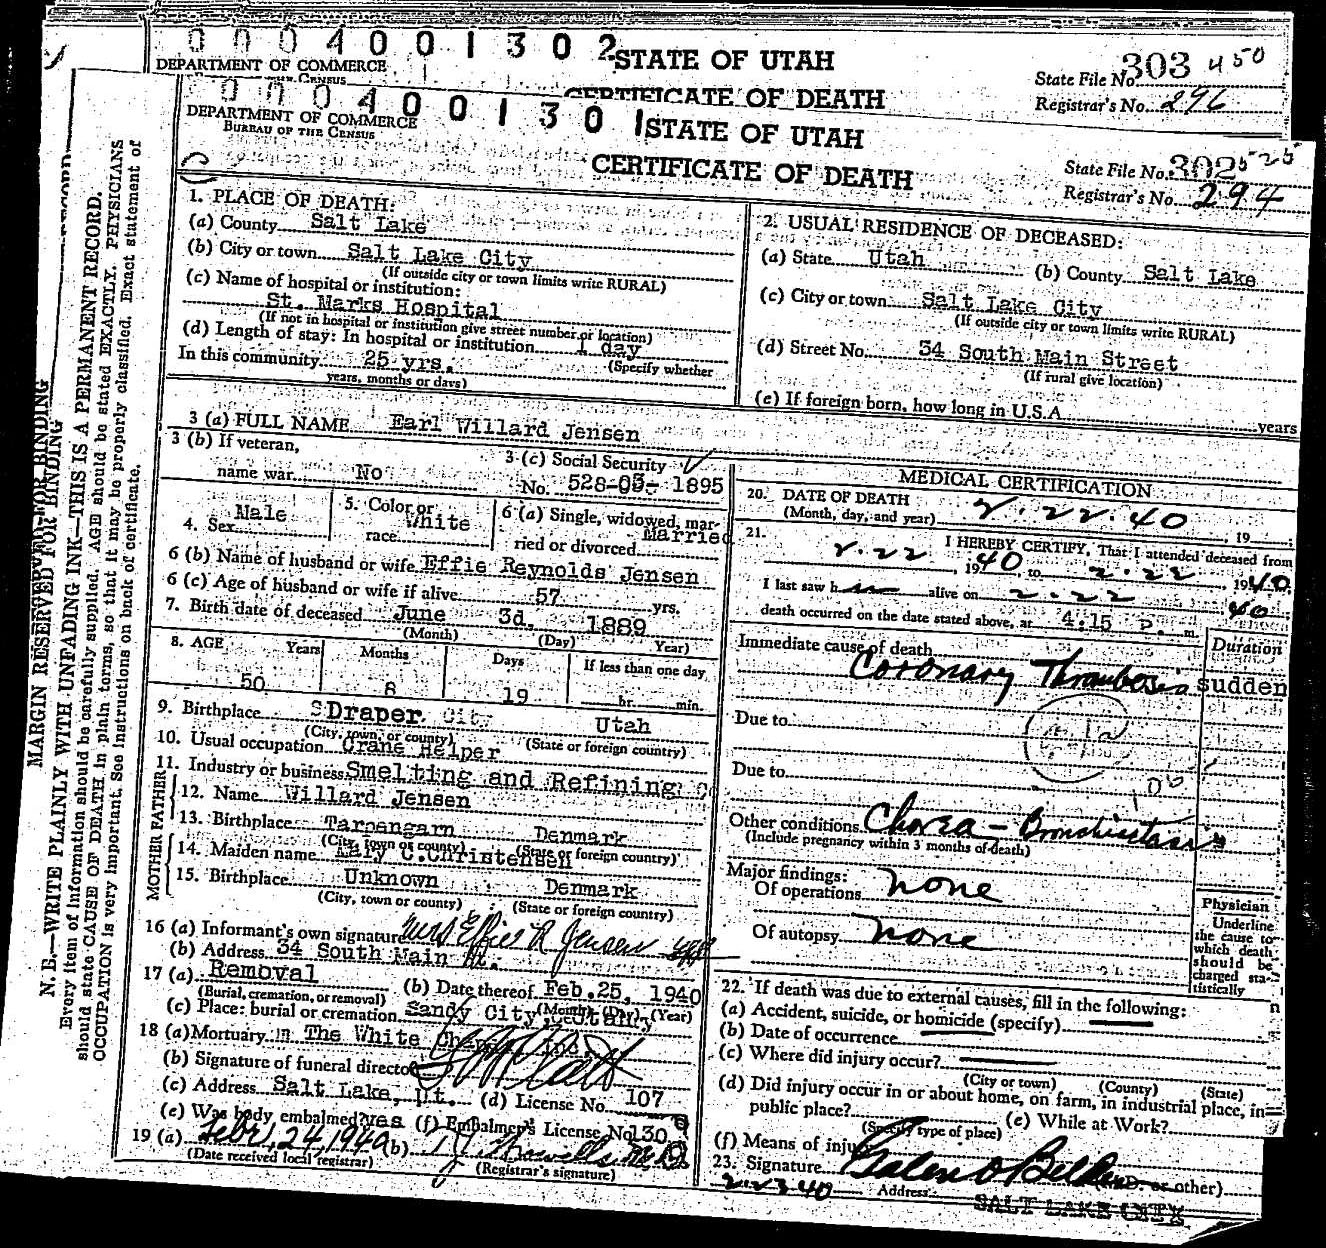 0004001302 STATE OF UTAH
DEPARTMENT OF COMMERCE
CERTIFICATE OF DEATH
State File No. 303 450
Registrar's No. 296
0004001301 STATE OF UTAH
DEPARTMENT OF COMMERCE
BUREAU OF THE CENSUS
CERTIFICATE OF DEATH
State File No. 302 525
Registrar's No. 294
MARGIN RESERVED FOR BINDING
N. B.—WRITE PLAINLY WITH UNFADING INK—THIS IS A PERMANENT RECORD.
Every item of information should be carefully supplied. AGE should be stated EXACTLY. PHYSICIANS
should state CAUSE OF DEATH in plain terms, so that it may be properly classified. Exact statement of
OCCUPATION is very important. See instructions on back of certificate.
1. PLACE OF DEATH:
(a) County Salt Lake
(b) City or town Salt Lake City
(If outside city or town limits write RURAL)
(c) Name of hospital or institution:
St. Marks Hospital
(If not in hospital or institution give street number or location)
(d) Length of stay: In hospital or institution 1 day
(Specify whether
In this community 25 yrs.
years, months or days)
2. USUAL RESIDENCE OF DECEASED:
(a) State Utah (b) County Salt Lake
(c) City or town Salt Lake City
(If outside city or town limits write RURAL)
(d) Street No. 34 South Main Street
(If rural give location)
(e) If foreign born, how long in U.S.A. years
3 (a) FULL NAME Earl Willard Jensen
3 (b) If veteran,
name war No
3 (c) Social Security
No. 528-03-1895
4. Sex Male
5. Color or race White
6 (a) Single, widowed, married or divorced Married
6 (b) Name of husband or wife Effie Reynolds Jensen
6 (c) Age of husband or wife if alive 57 yrs.
7. Birth date of deceased June 3d. 1889
(Month) (Day) Year)
8. AGE Years Months Days If less than one day
50 8 19 hr. min.
9. Birthplace Draper City Utah
(City, town, or county) (State or foreign country)
10. Usual occupation Crane Helper
11. Industry or business Smelting and Refining Co
FATHER
12. Name Willard Jensen
13. Birthplace Denmark
(City, town or county) (State or foreign country)
MOTHER
14. Maiden name Mary C. Christensen
15. Birthplace Unknown Denmark
(City, town or county) (State or foreign country)
16 (a) Informant's own signature Mrs Effie R Jensen
(b) Address 34 South Main St.
17 (a) Removal (b) Date thereof Feb. 25, 1940
(Burial, cremation, or removal) (Month) (Day) (Year)
(c) Place: burial or cremation Sandy City, Utah
18 (a) Mortuary In The White Chapel Inc.
(b) Signature of funeral director
(c) Address Salt Lake, Ut. (d) License No. 107
(e) Was body embalmed? yes (f) Embalmer's License No. 130
19 (a) Febr. 24, 1940 (b)
(Date received local registrar) (Registrar's signature)
MEDICAL CERTIFICATION
20. DATE OF DEATH
(Month, day, and year) 2.22.40, 19
21. I HEREBY CERTIFY, That I attended deceased from
2.22, 1940, to 2.22, 1940
I last saw him alive on 2.22 40
death occurred on the date stated above, at 4:15 P. m.
Immediate cause of death Duration
Coronary Thrombosis sudden
Due to
Due to
Other conditions Chorea - Bronchiectasis
(Include pregnancy within 3 months of death)
Major findings:
Of operations none
Of autopsy none
Physician
Underline
the cause to
which death
should be
charged sta-
tistically
22. If death was due to external causes, fill in the following:
(a) Accident, suicide, or homicide (specify)
(b) Date of occurrence
(c) Where did injury occur?
(City or town) (County) (State)
(d) Did injury occur in or about home, on farm, in industrial place, in
public place? (e) While at Work?
(Specify type of place)
(f) Means of injury
23. Signature Galen O Belden (M.D. or other)
2-23-40 Address SALT LAKE CITY